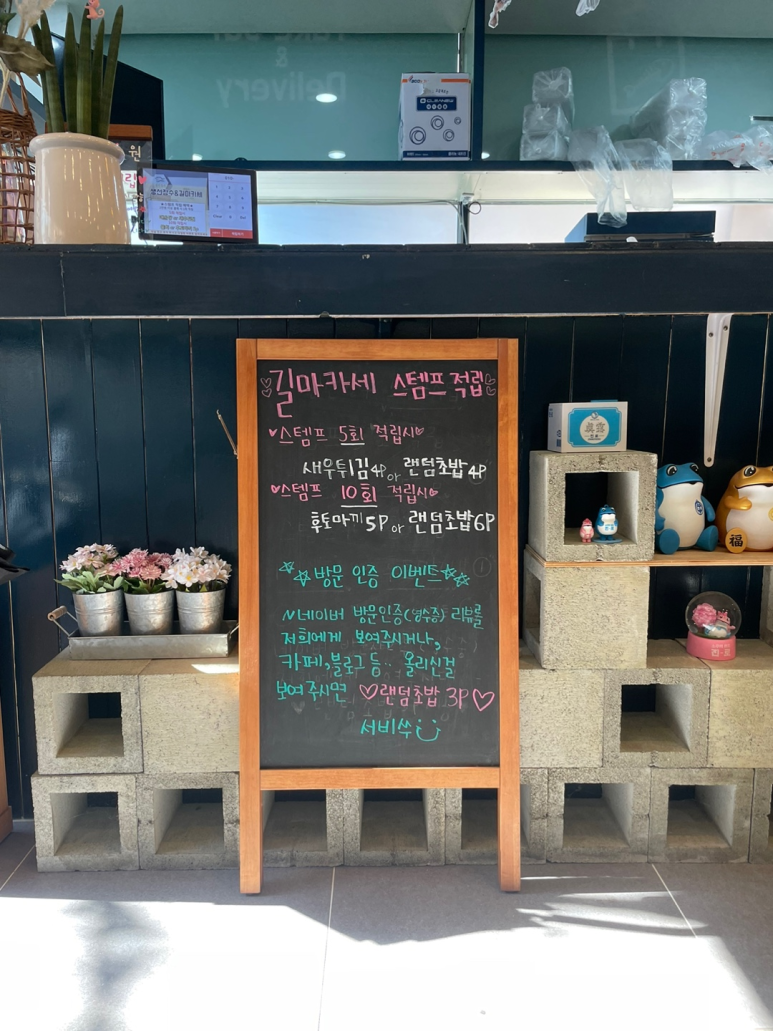 Delivery
&
원
길마카세 스템프 적립
스템프 5회 적립시
새우튀김 4P or 랜덤초밥 4P
스템프 10회 적립시
후토마끼 5P or 랜덤초밥 6P
방문 인증 이벤트
N네이버 방문인증(영수증) 리뷰를
저희에게 보여주시거나,
카페,블로그 등.. 올리신걸
보여주시면 랜덤초밥 3P
서비쓰
福